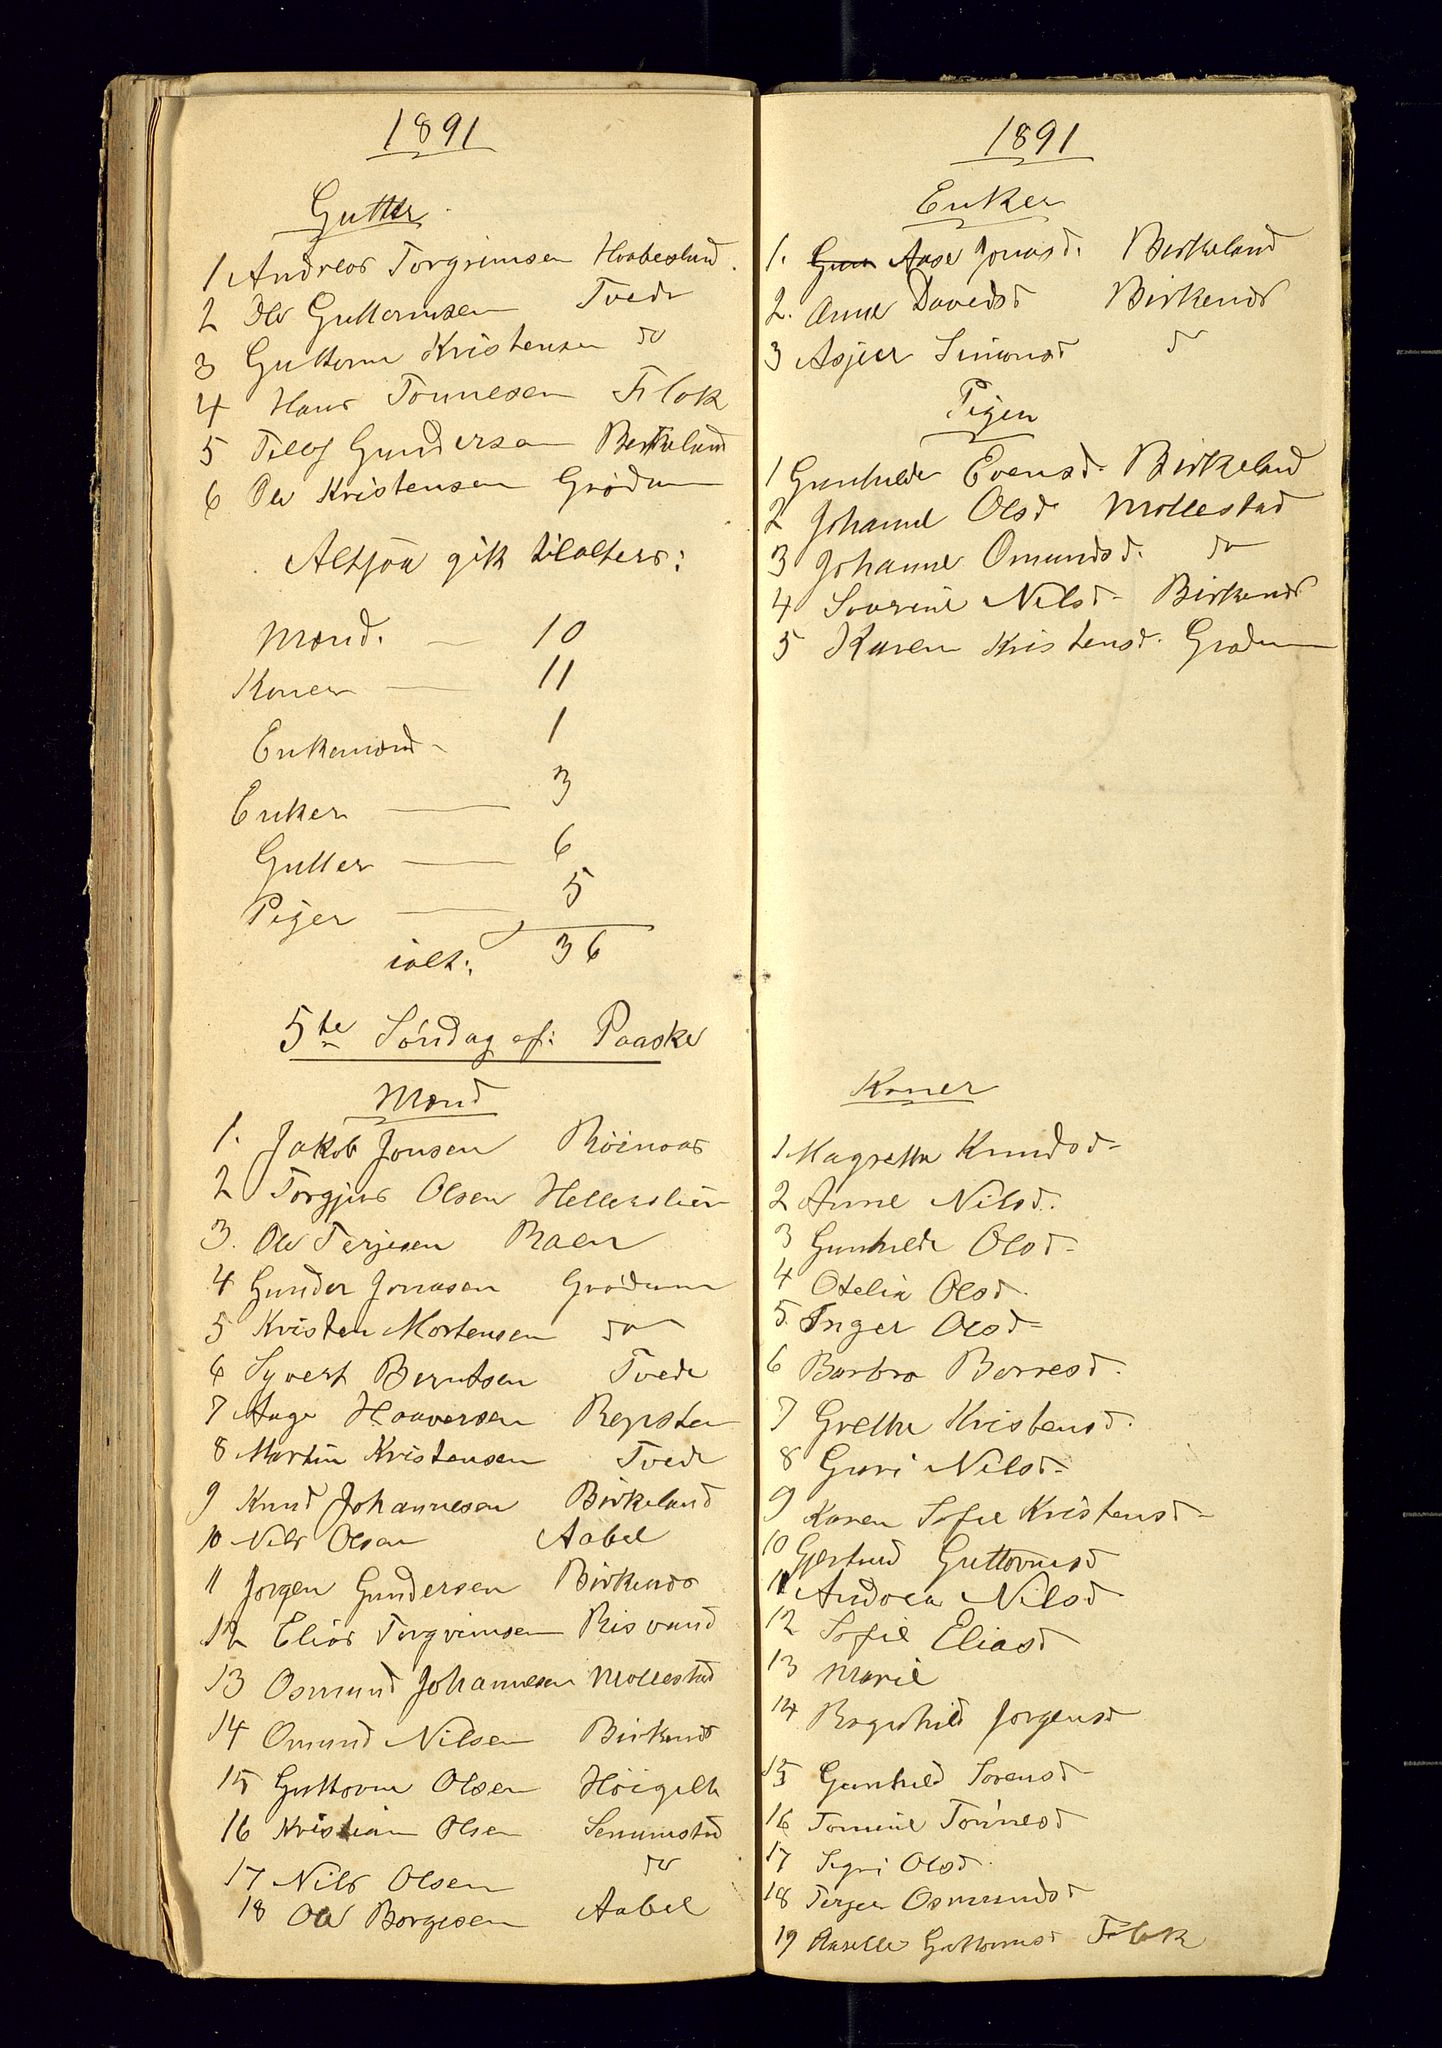 1891
Gutter
1 Andreas Torgrimsen Haabesland
2 Ole Guttormsen Tvede
3 Guttorm Kristensen do
4 Hans Tonnesen Flak
5 Tellef Gundersen Birkeland
6 Ole Kristensen Grödum
Altsaa gik tilalters:
Mænd. — 10
Koner — 11
Enkemænd - 1
Enker — 3
Gutter — 6
Piger — 5
ialt: 36
5te Søndag ef: Paaske
Mænd
1. Jakob Jonsen Röinaas
2 Torgjus Olsen Hellerslien
3. Ole Terjesen Raen
4 Gunder Jonasen Grödum
5 Kristen Mortensen do
6 Syvert Berntsen Tvede
7 Aage Haaversen Repsten
8 Martin Kristensen Tvede
9 Knud Johannesen Birkeland
10 Nils Olsen Aabel
11 Jorgen Gundersen Birkenes
12 Elias Torgrimsen Risvand
13 Osmund Johannesen Mollestad
14 Omund Nilsen Birkenes
15 Guttorm Olsen Höigilt
16 Kristian Olsen Senumstad
17 Nils Olsen do
18 Ole Borgesen Aabel
1891
Enker
1. Aase Jonasd. Birkeland
2. Anne Davidsd Birkenes
3 Asjer Simonsd do
Piger
1 Gunhilde Evensd. Birkeland
2 Johanne Olsd. Mollestad
3 Johanne Omundsd. do
4 Severine Nilsd- Birkenes
5 Karen Kristensd. Grødum
Koner
1. Magrethe Knudsd-
2 Anne Nilsd.
3 Gunhilde Olsd-
4 Otelia Olsd.
5. Inger Olsd-
6 Barbro Borresd.
7 Grethe Kristensd.
8 Guri Nilsd-
9 Karen Sofie Kristensd-
10 Gjertrud Guttormsd
11 Andrea Nilsd
12 Sofie Eliasd
13 Marie
14 Ragnhild Jorgensd
15 Gunhild Sorensd
16 Tomine Tönnesd
17 Signi Olsd.
18 Terjer Osmundsd
19 Guttormsd Flak